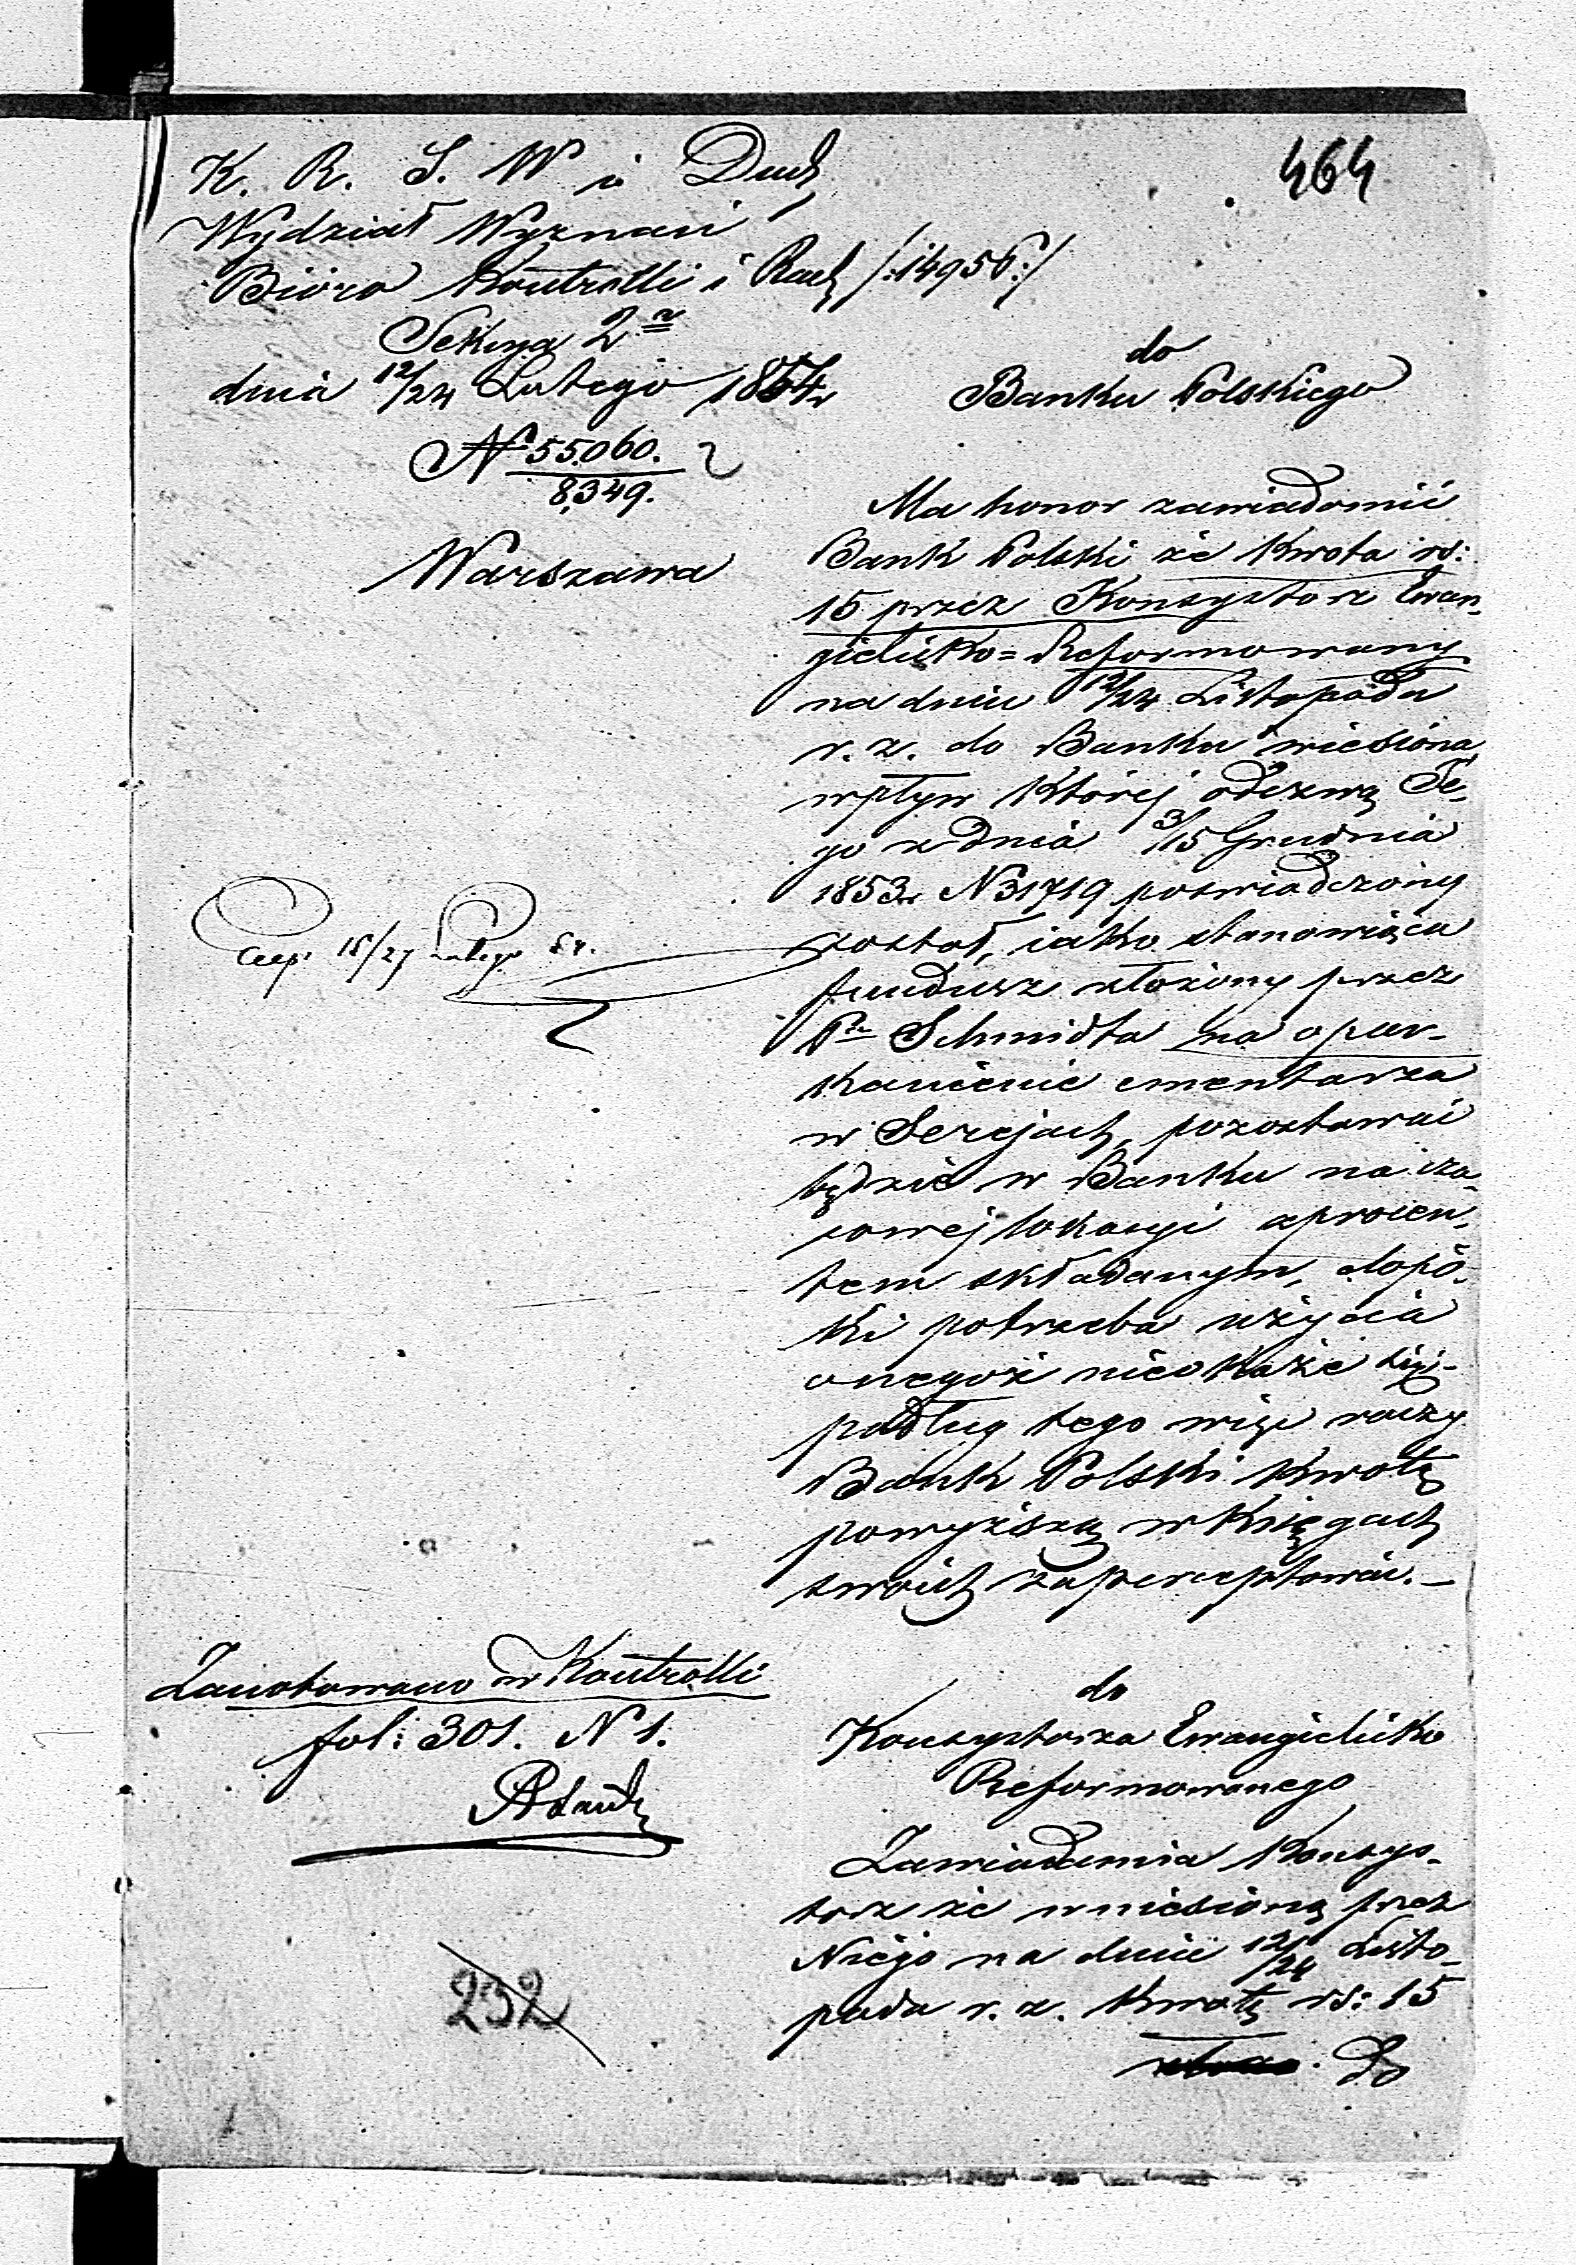 464
K. R. S. W i Duch
Wydział Wyznań
Bióro Kontrolli i Rach /:14956:/
Sekcya 2a
dnia 12/24 Lutego 1854r
N 55060.
8349.
Warszawa
do
Banku Polskiego
Ma honor zawiadomić
Bank Polski że kwota rs:
15 przez Konsystorz Ewan-
gielicko=Reformowany
na dniu 12/24 Listopada
r. z. do Banku wniesiona
wpływ której odezwą Te-
go z dnia 3/15 Grudnia
1853r N 31719 poświadczony
został, iako stanowiąca
fundusz złożony przez
Pa Schmidta na opar-
kanienie cmentarza
w Serejach, pozostawać
będzie w Banku na cza-
sowej lokacyi z procen-
tem składanym, dopó-
ki potrzeba użycia
onegoż nieokaże się-
podług tego więc raczy
Bank Polski kwotę
powyższą w Księgach
swoich zaperceptować.—
15/27 Lutego 54.
Zanotowano w Kontrolli
fol: 301. N 1.
do
Konsystorza Ewangielicko
Reformowanego
Zawiadamia Konsys-
torz że wniesioną przez
Niego na dniu 12/24 Listo-
pada r. z. kwotę rs: 15
Do
232